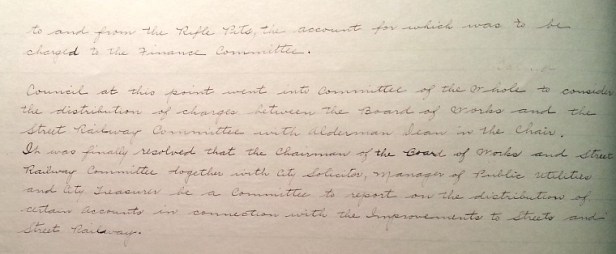 to and from the Rifle Pits, the account for which was to be
charged to the Finance Committee.
Council at this point went into Committee of the Whole to consider
the distribution of charges between the Board of Works and the
Street Railway Committee with Alderman in the Chair.
It was finally resolved that the Chairman of the Board of Works and Street
Railway Committee together with City Solicitor, Manager of Public Utilities
and City Treasurer be a Committee to report on the distribution of
certain accounts in connection with the Improvements to Streets and
Street Railway.